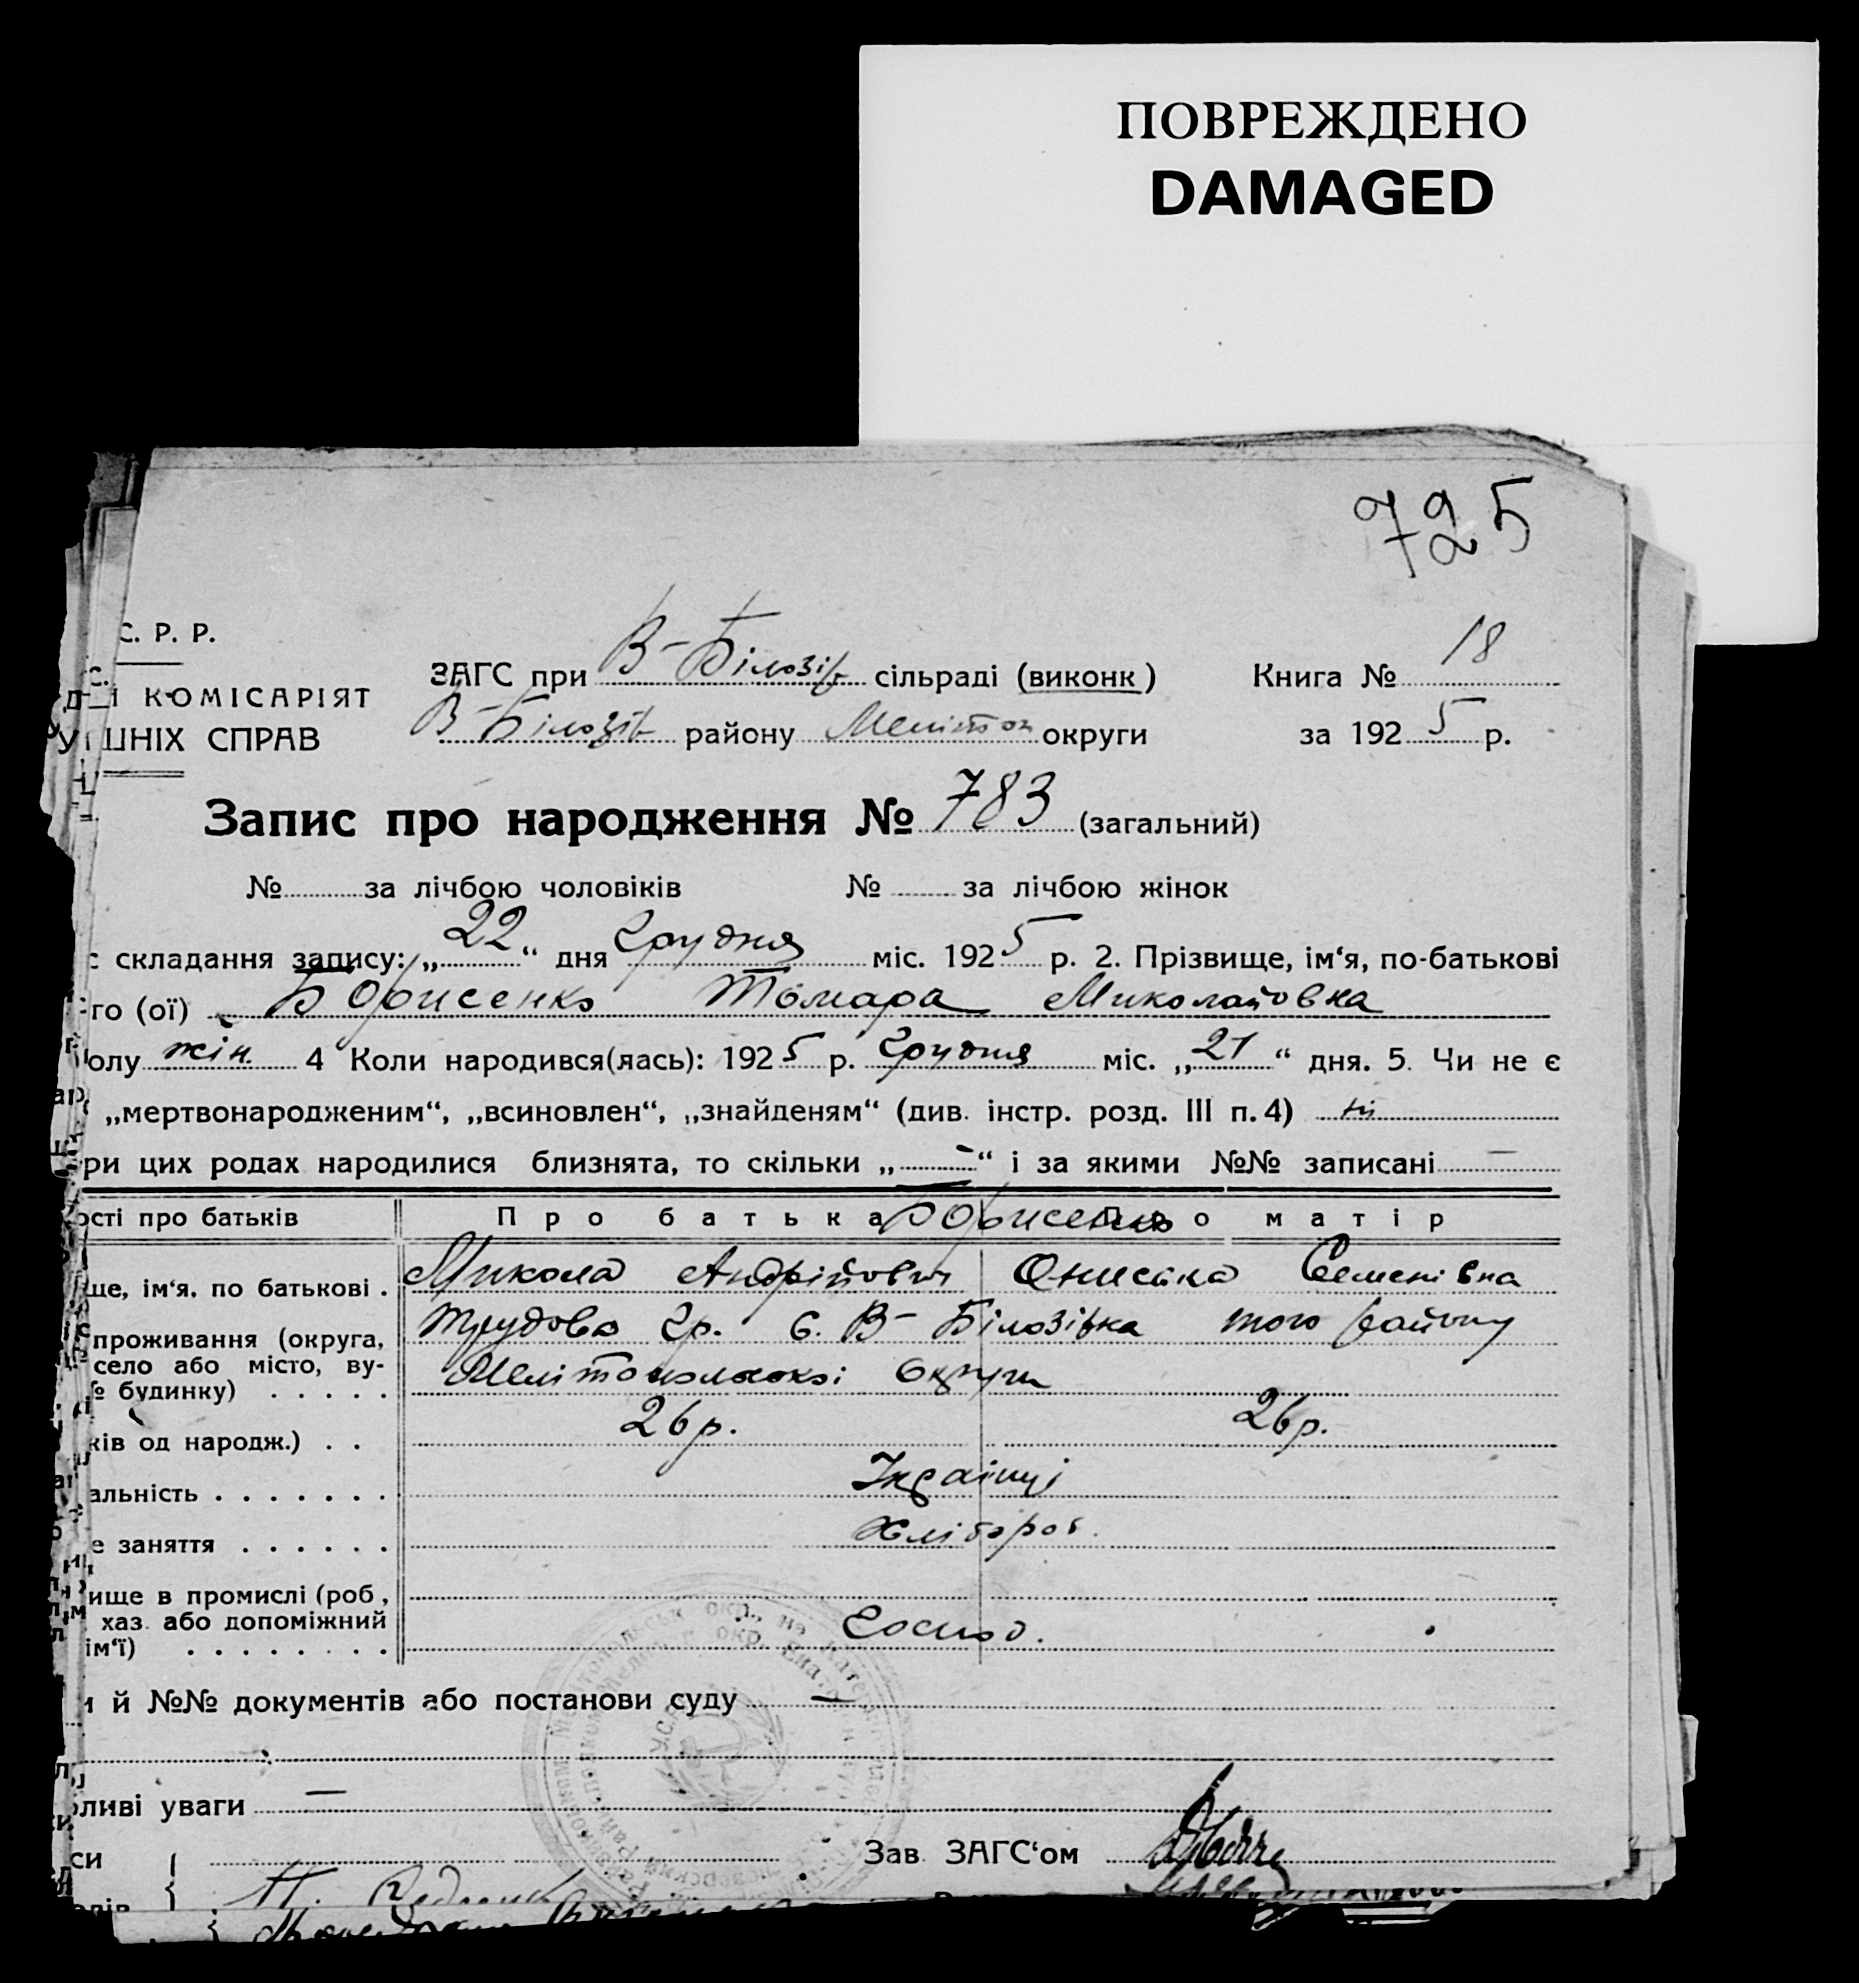 ПОВРЕЖДЕНО
DAMAGED
725
С. Р. Р.
КОМІСАРІЯТ
ШНІХ СПРАВ
ЗАГС при В-Білозів сільраді (виконк) Книга № 18
В-Білозів району Мелітоп округи за 1925 р.
Запис про народження № 783 (загальний)
№ за лічбою чоловіків № за лічбою жінок
складання запису: „22“ дня Грудня міс. 1925 р. 2. Прізвище, ім‘я, по-батькові
го (ої) Борисенко Тамара Миколаівна
олу жін. 4 Коли народився(лась): 1925 р. Грудня міс. „21“ дня. 5. Чи не є
„мертвонародженим“, „всиновлен“, „знайденям“ (див. інстр. розд. III п. 4) ні
ри цих родах народилися близнята, то скільки „—“ і за якими №№ записані —
ості про батьків Про батька Борисенко Про матір
ще, ім‘я. по батькові . Микола Андрійович Ониська Семенівна
проживання (округа, Трудова гр. с. В-Білозівка того району
село або місто, ву- Мелітопольскої Округи
№ будинку) . . . . .
ків од народж.) . . 26 р. 26 р.
альність . . . . . . . Українці
е заняття . . . . . . Хлібороб.
ище в промислі (роб,
хаз. або допоміжний Господ.
ім‘ї) . . . . . . . .
и й №№ документів або постанови суду —
ливі уваги —
си Зав ЗАГС‘ом